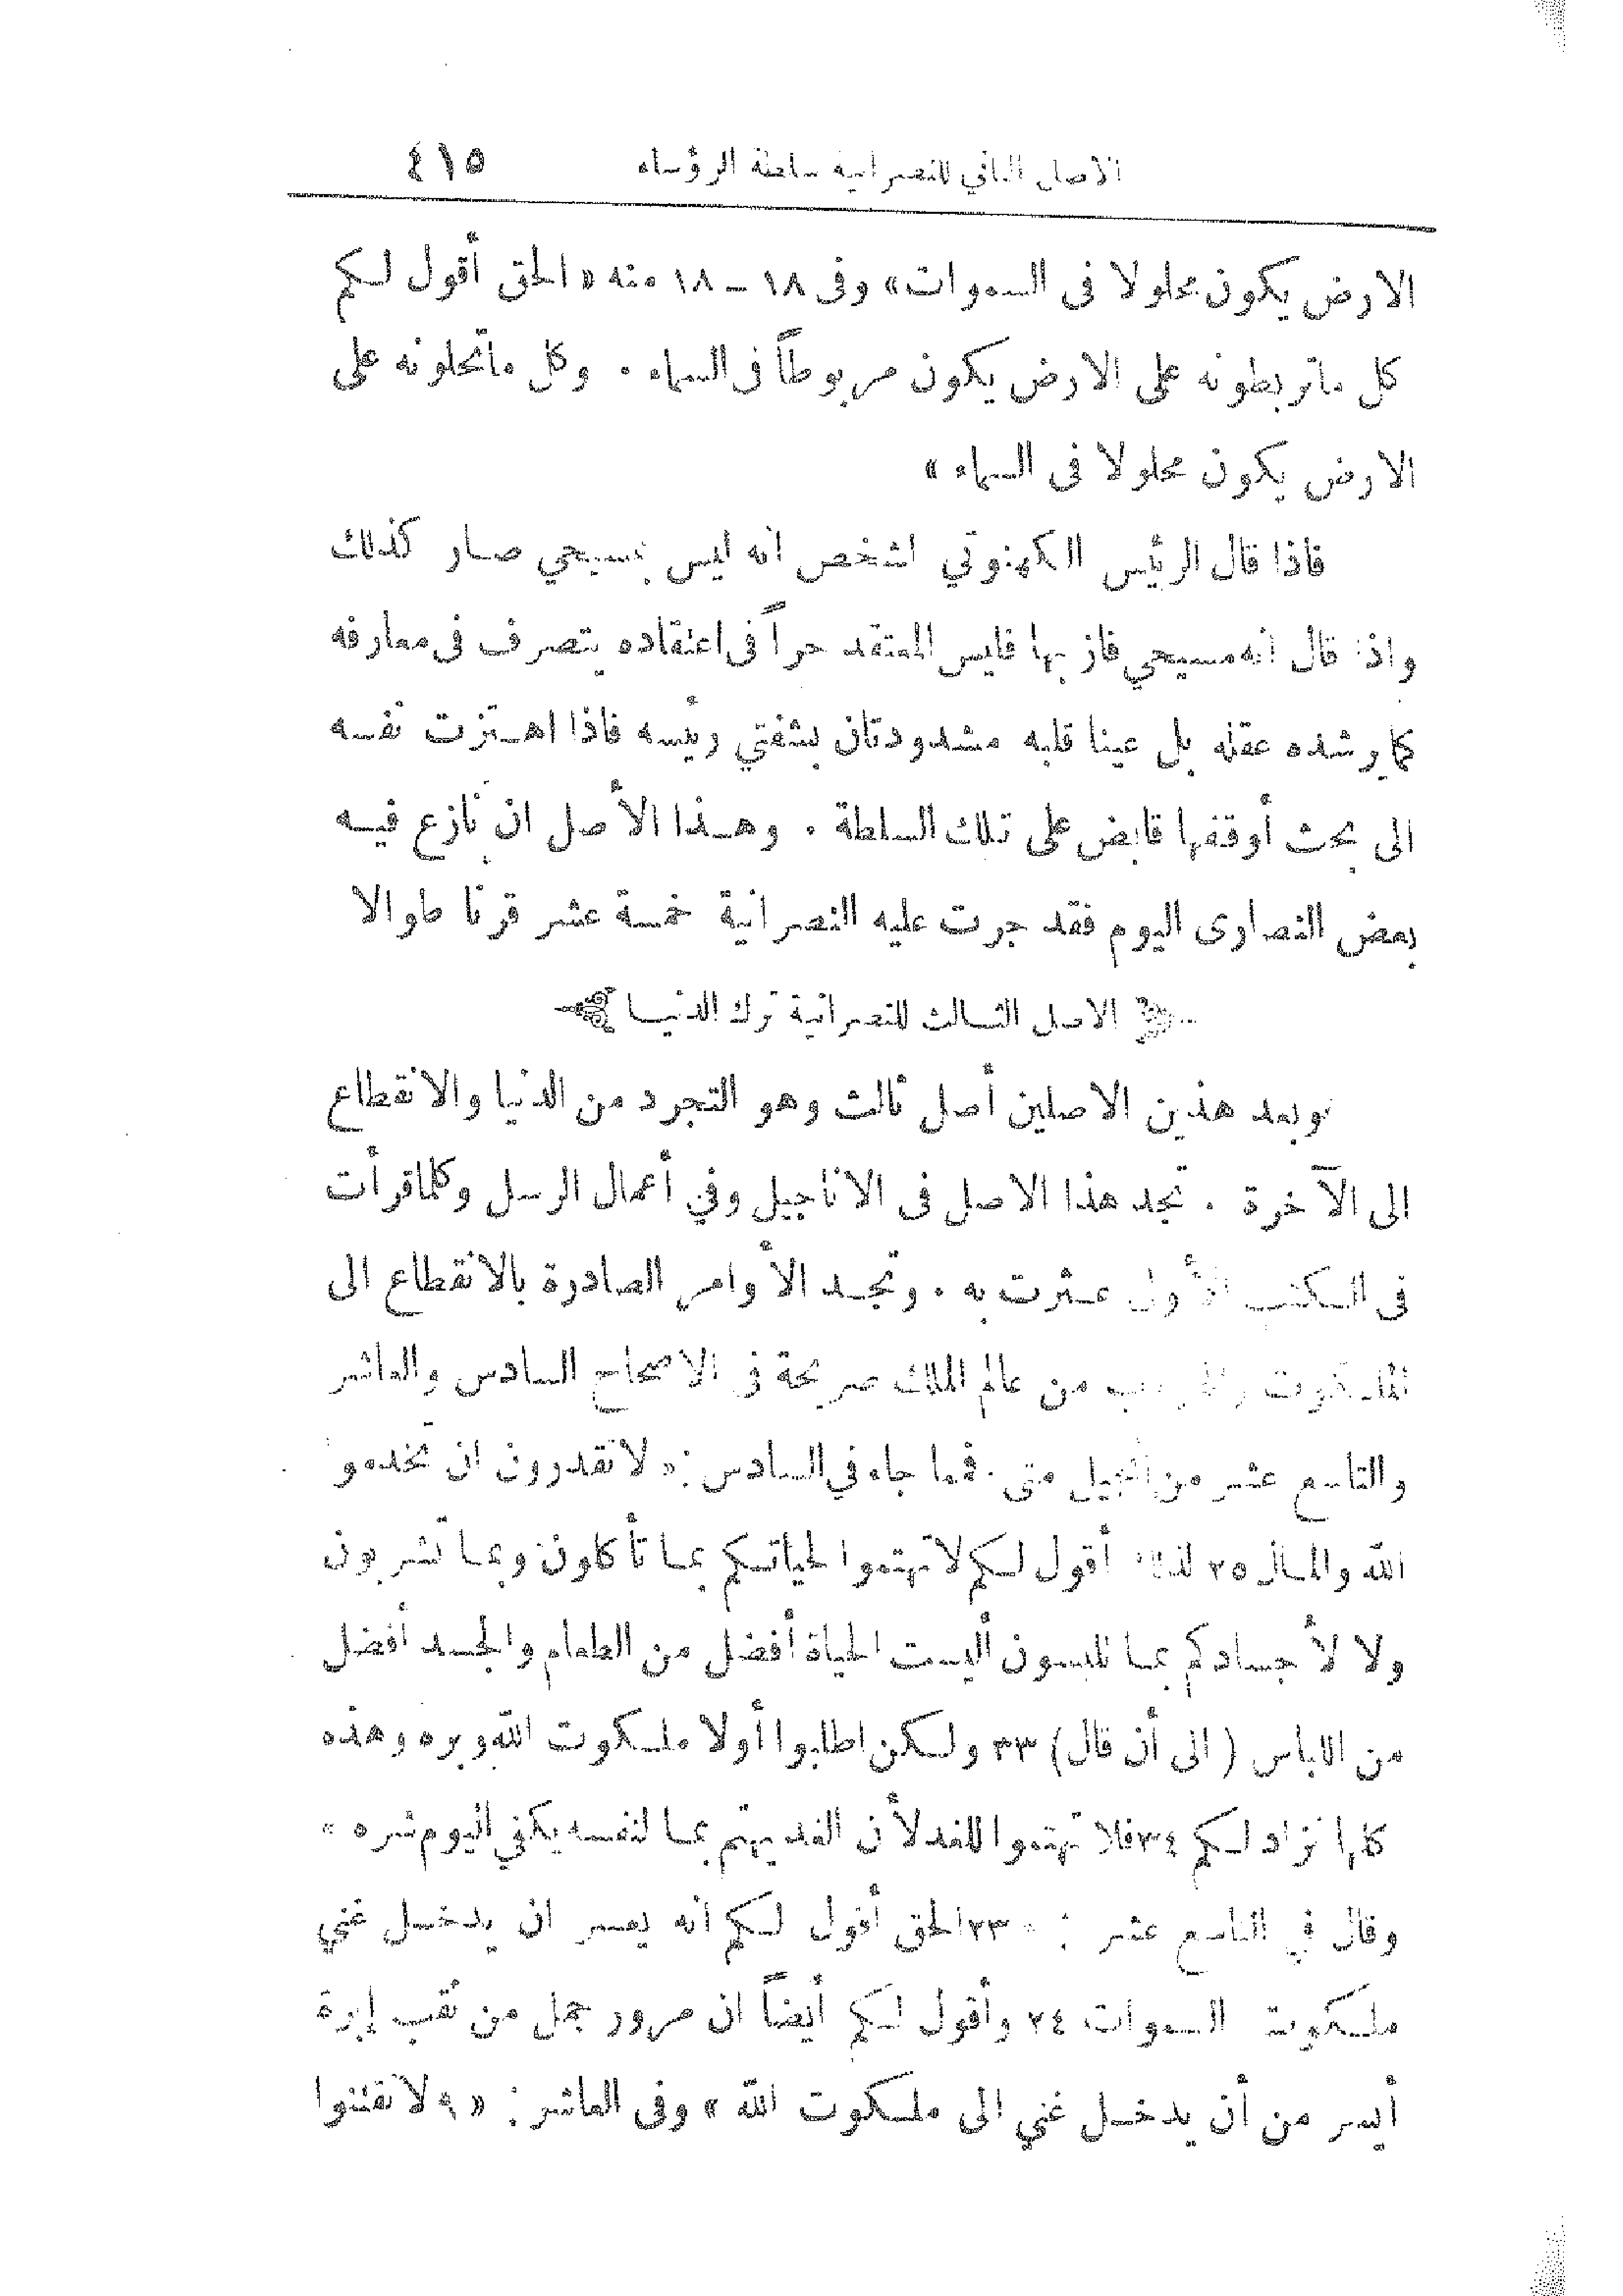 الاصل الثاني للنصرانية سلطة الرؤساء ٤١٥
الارض يكون محلولا فى السموات» وفى ١٨ ــ ١٨ منه «الحق أقول لكم
كل ماتربطونه على الارض يكون مربوطاً فى السماء . وكل ماتحلونه على
الارض يكون محلولا فى السماء »
فاذا قال الرئيس الكهنوتي لشخص انه ليس بمسيحي صار كذلك
واذا قال انه مسيحي فاز بها فليس المعتقد حراً فى اعتقاده يتصرف فى معارفه
كما يرشده عقله بل عينا قلبه مشدودتان بشفتي رئيسه فاذا اهتزت نفسه
الى بحث أوقفها قابض على تلك السلطة . وهذا الأصل ان نازع فيه
بعض النصارى اليوم فقد جرت عليه النصرانية خمسة عشر قرنا طوالا
الاصل الثالث للنصرانية ترك الدنيا
وبعد هذين الاصلين أصل ثالث وهو التجرد من الدنيا والانقطاع
الى الآخرة . تجد هذا الاصل فى الاناجيل وفي أعمال الرسل وكلما قرأت
فى الكتب الأول عثرت به . وتجد الأوامر الصادرة بالانقطاع الى
الملكوت من عالم الملك صريحة فى الاصحاح السادس والعاشر
والتاسع عشر من انجيل متى . فمما جاء في السادس : « لا تقدرون ان تخدمو
الله والمال ٢٥ لذلك أقول لكم لا تهتموا لحياتكم بما تأكلون وبما تشربون
ولا لأجسادكم بما تلبسون أليست الحياة أفضل من الطعام والجسد أفضل
من اللباس ( الى أن قال) ٣٣ ولكن اطلبوا أولا ملكوت الله وبره وهذه
كلها تزاد لكم ٣٤ فلا تهتموا للغد لأن الغد يهتم بما لنفسه يكفي اليوم شره »
وقال في التاسع عشر : « ٢٣ الحق أقول لكم أنه يعسر ان يدخل غني
ملكوت السموات ٢٤ وأقول لكم أيضاً ان مرور جمل من ثقب إبرة
أيسر من أن يدخل غني الى ملكوت الله » وفى العاشر : « ٩ لا تقتنوا